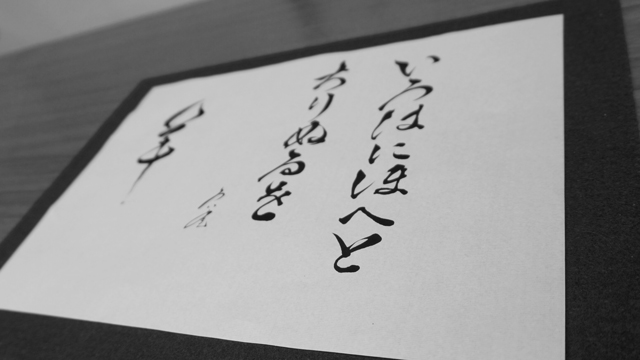 いろはにほへと
ちりぬるを